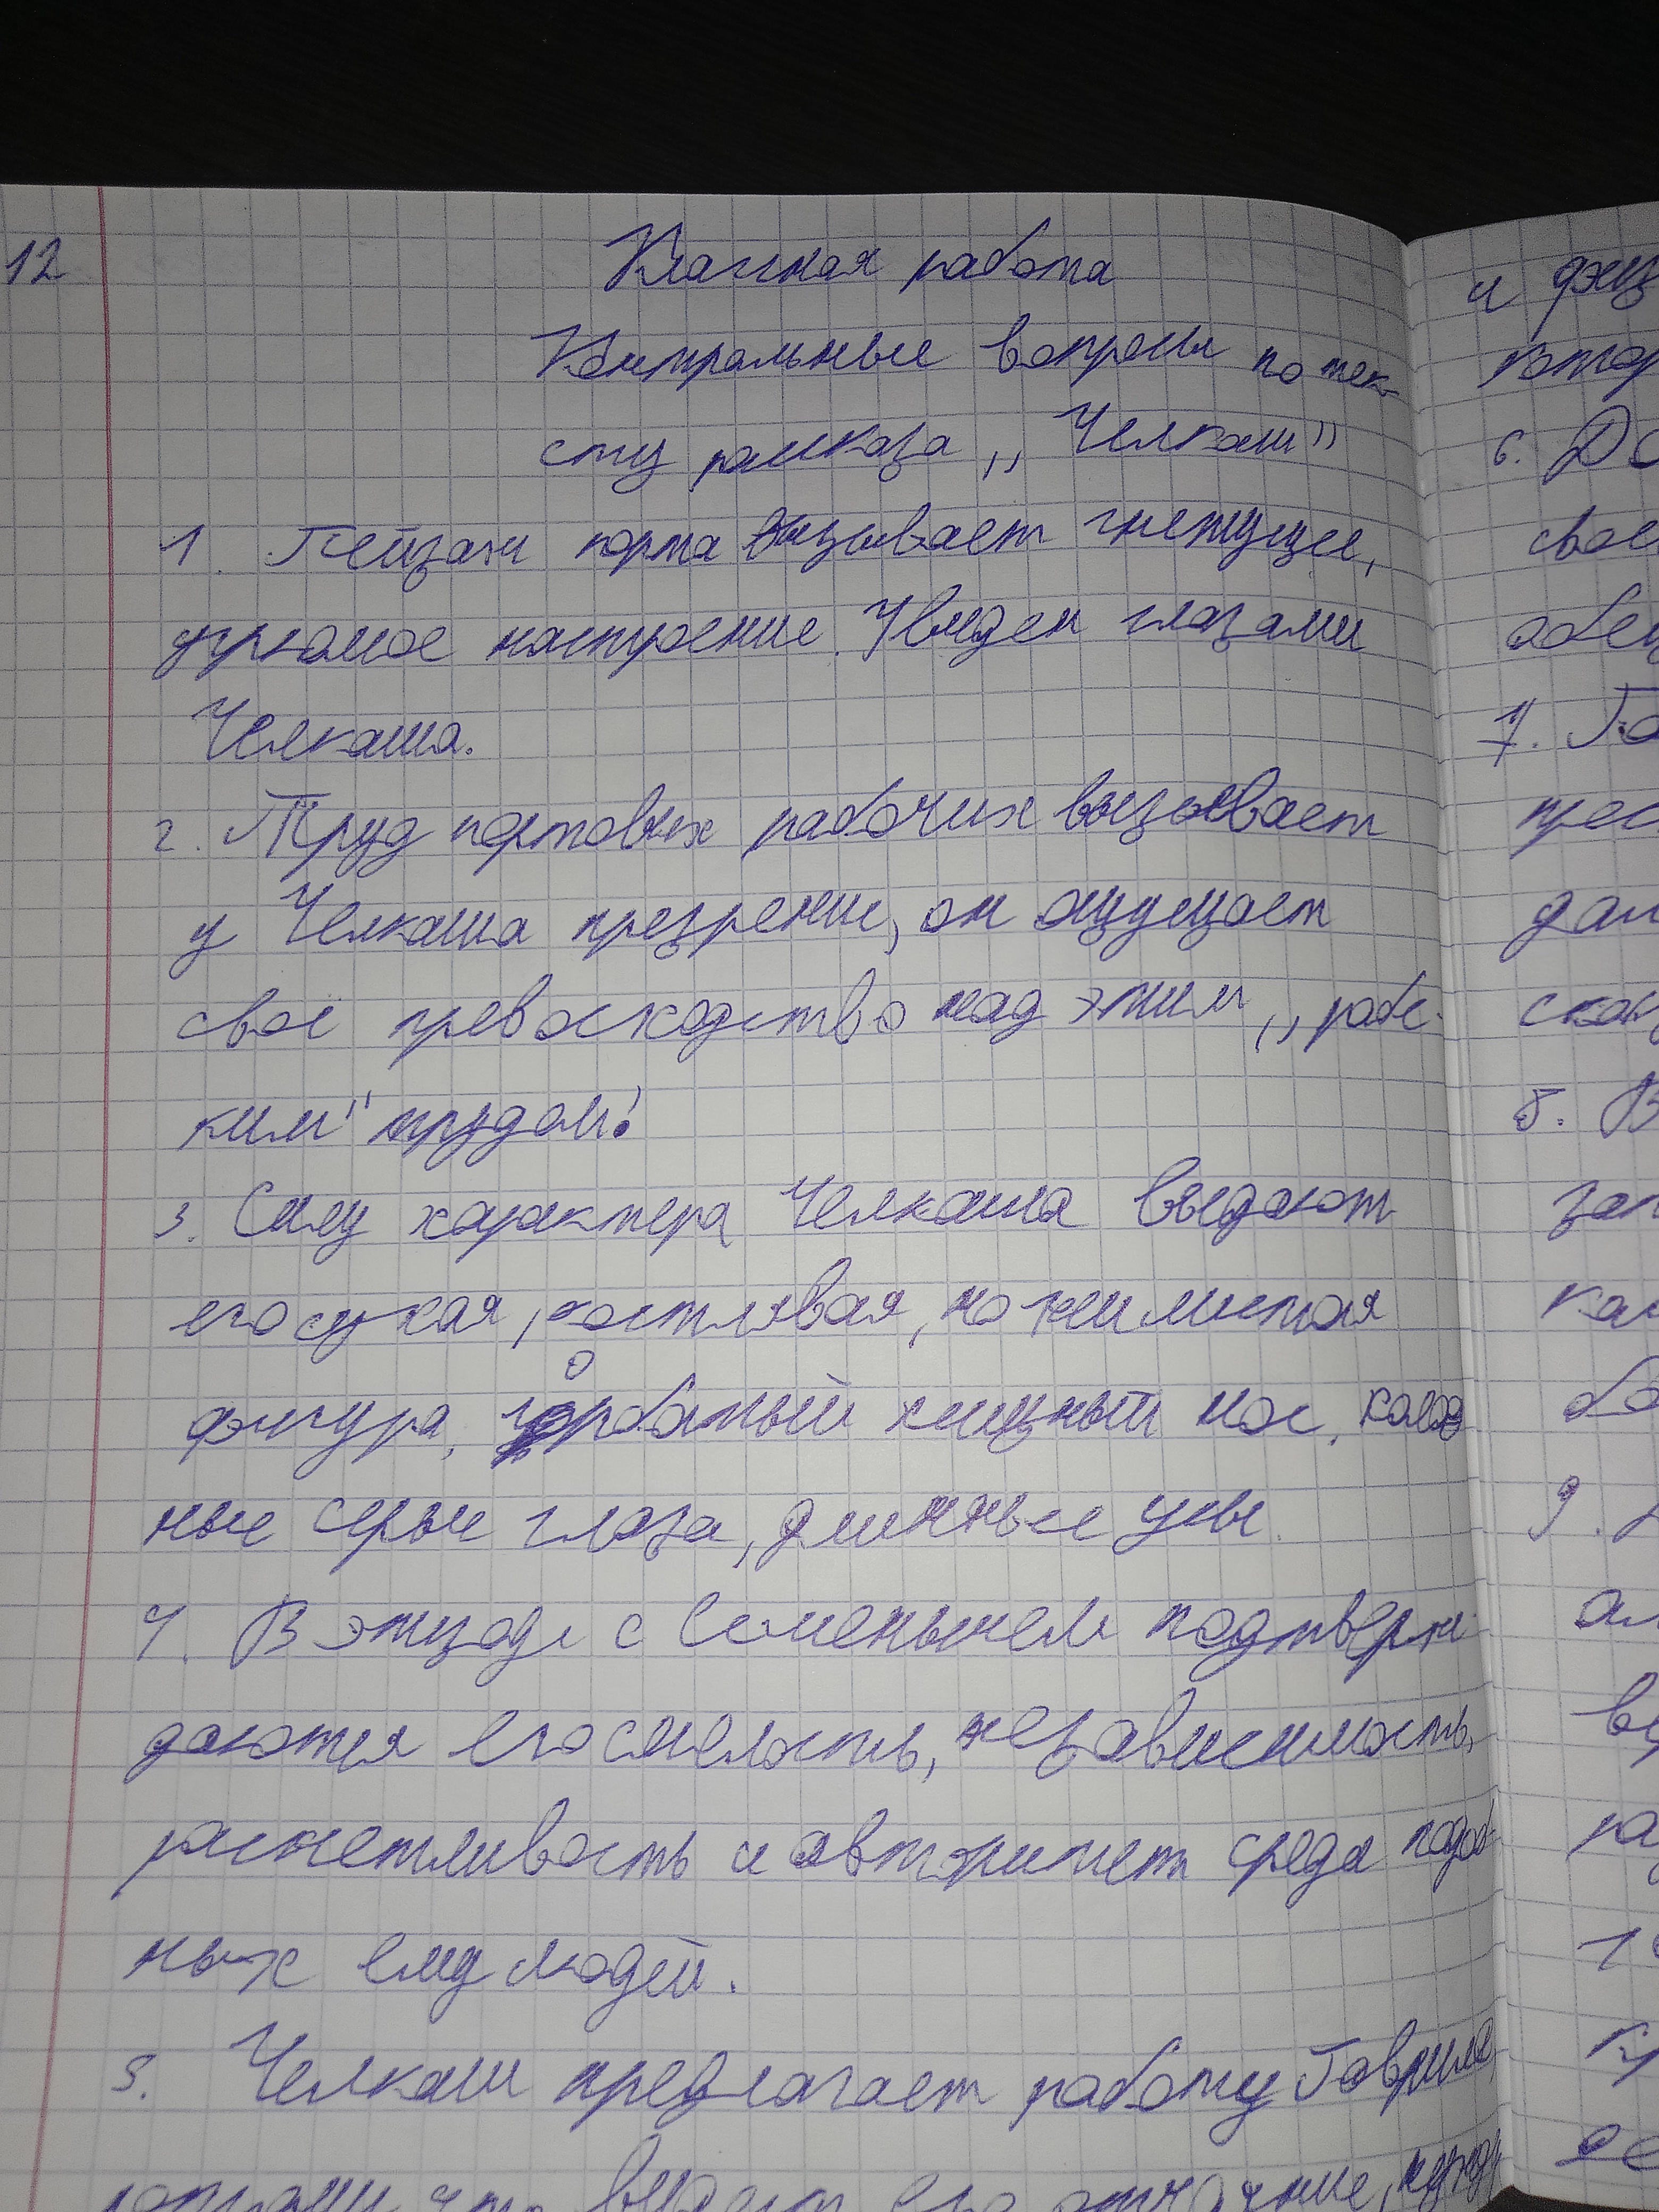 12
Классная работа
Контрольные вопросы по тек-
сту рассказа ,, Челкаш"
1. Пейзаж порта вызывает гнетущее,
угрюмое настроение. Увиден глазами
Челкаша.
2. Труд портовых рабочих вызывает
у Челкаша презрение, он ощущает
своё превосходство над этим ,, рабс-
ким" трудом!
3. Силу характера Челкаша выдают
его сухая, костлявая, но жилистая
фигура, горбатый хищный нос, холод
ные серые глаза, длинные усы.
4. В эпизоде с Семёнычем подтверж-
даются его смелость, независимость,
расчетливость и авторитет среди подоб-
ных ему людей.
5. Челкаш предлагает работу Гавриле,
потому что видит его отчаяние,
и
6.
7.
8. В
9.